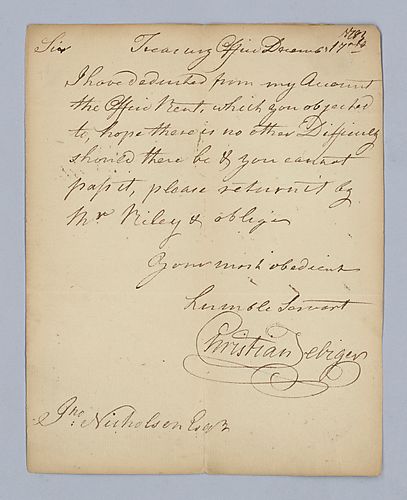 Sir Treasury Office Decemr 17th
I have deducted from my Account
the Office Rent, which you objected
to, hope there is no other Difficulty
should there be & you cannot
pass it, please return it by
Mr Riley & oblige
Your most obedient
humble Servant
Christian Febiger
Jno Nicholson Esqr